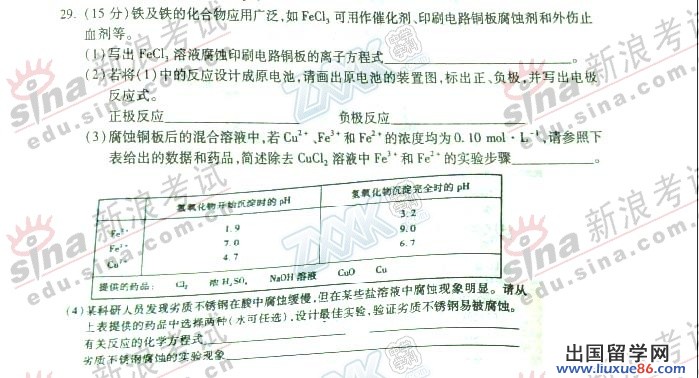 29. (15 分)铁及铁的化合物应用广泛,如 FeCl₃ 可用作催化剂、印刷电路铜板腐蚀剂和外伤止
血剂等。
(1)写出 FeCl₃ 溶液腐蚀印刷电路铜板的离子方程式 。
(2)若将(1)中的反应设计成原电池,请画出原电池的装置图,标出正、负极,并写出电极
反应式。
正极反应 负极反应
(3)腐蚀铜板后的混合溶液中,若 Cu²⁺、Fe³⁺和 Fe²⁺的浓度均为 0.10 mol·L⁻¹,请参照下
表给出的数据和药品,简述除去 CuCl₂ 溶液中 Fe³⁺和 Fe²⁺的实验步骤 。
氢氧化物开始沉淀时的 pH 氢氧化物沉淀完全时的 pH
Fe³⁺ 1.9 3.2
Fe²⁺ 7.0 9.0
Cu²⁺ 4.7 6.7
提供的药品: Cl₂ 浓 H₂SO₄ NaOH 溶液 CuO Cu
(4)某科研人员发现劣质不锈钢在酸中腐蚀缓慢,但在某些盐溶液中腐蚀现象明显。请从
上表提供的药品中选择两种(水可任选),设计最佳实验,验证劣质不锈钢易被腐蚀。
有关反应的化学方程式
劣质不锈钢腐蚀的实验现象
sina 新浪考试
edu.sina.com.cn
sina 新浪考试
edu.sina.com.cn
sina 新浪考试
edu.sina.com.cn
sina 新浪考试
edu.sina.com.cn
出国留学网
www.liuxue86.com